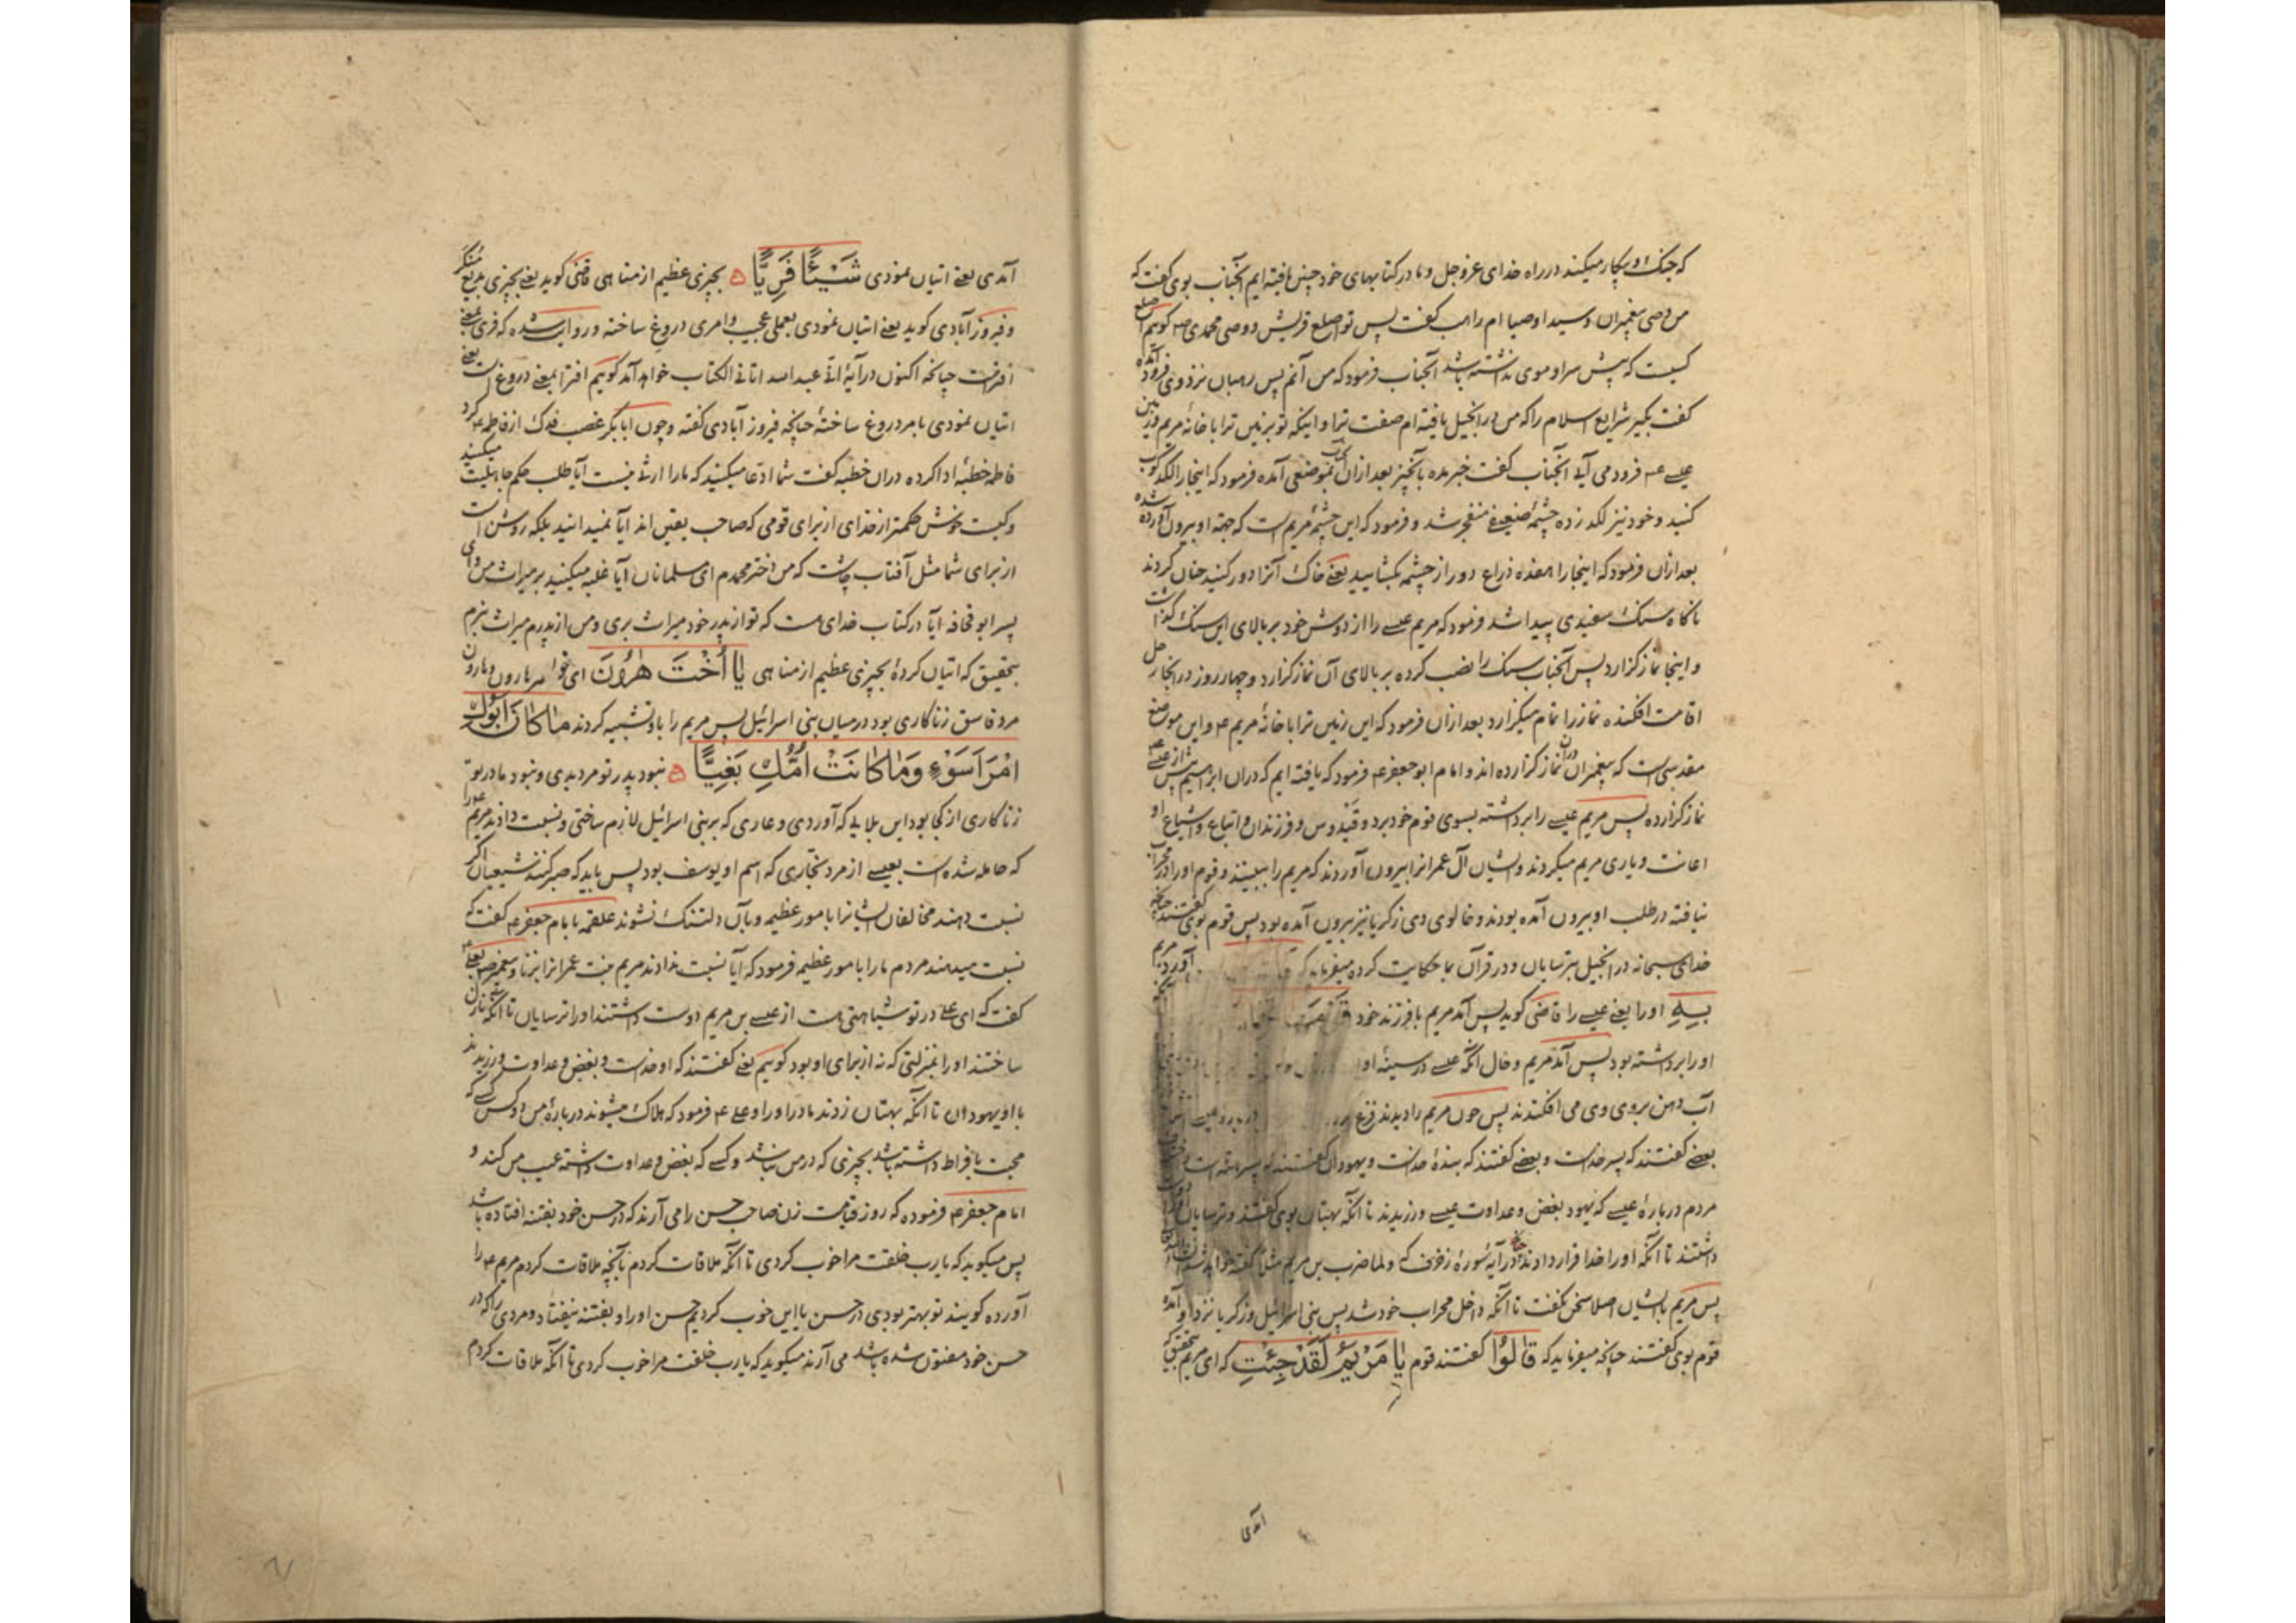 که جنک او پیکار میکنند در راه خدای عزوجل و ما در کتابهای خود چنین یافته ایم آنجناب بوی کفت که
من وصی پیغمبران و سید اوصیا ام راهب کفت پس تو اصلع قریش و وصی محمدی ص کوئیم اصلع
کسیت که پیش سر او موی نداشته باشد آنجناب فرمود که من آنم پس رهبان نزد وی فرود آمده
کفت بکیر شرایع اسلام را که من در انجیل یافته ام صفت ترا و اینکه تو بزمین براثا خانه مریم و زمین
عیسے ع فرود می آیی آنجناب کفت خبر مده بآنچیز بعد ازان بموضعی آمده فرمود که اینجا را لکد کوب
کنید و خود نیز لکد زده چشمهٔ منفجر شد و فرمود که این چشمهٔ مریم است که جهة او بیرون آورده شده
بعد ازان فرمود که اینجا را هفده ذراع دور از چشمه بکشایید یعنے خاک آنرا دور کنید چنان کردند
ناکاه سنک سفیدی پیدا شد فرمود که مریم عیسے را از دوش خود بر بالای این سنک کذاشت
و اینجا نماز کزارد پس آنجناب سنک را نصب کرده بر بالای آن نماز کزارد و چهار روز در انجا رحل
اقامت افکنده نماز را تمام میکزارد بعد ازان فرمود که این زمین براثا خانهٔ مریم ع و این موضع
مقدسی است که پیغمبران دران نماز کزارده اند و امام ابو جعفر ع فرمود که یافته ایم که دران ابراهیم پیش از عیسے ع
نماز کزارده پس مریم عیسے را برداشته بسوی قوم خود برد و قیدوس و فرزندان و اتباع و اشیاع او
اعانت و یاری مریم میکردند و ایشان آل عمرانرا بیرون آوردند که مریم را ببینند و قوم او را در محراب
نیافته در طلب او بیرون آمده بودند و خالوی وی زکریا نیز بیرون آمده بود پس قوم بوی کفتند چنانچه
خدای سبحانه در انجیل بترسایان و در قرآن بما حکایت کرده میفرماید که آورد مریم
بِهِ او را یعنے عیسے را قاضی کوید پس آمد مریم با فرزند خود
او را برداشته بود پس آمد مریم و حال آنکه عیسے در سینهٔ او
آب دهن بروی وی می افکندند پس چون مریم را دیدند
بعضے کفتند که پسر خداست و بعضے کفتند که بندهٔ خداست و یهودان کفتند که
مردم دربارهٔ عیسے که یهود بغض و عداوت عیسے ورزیدند تا آنکه بهتان بوی کفتند و ترسایان
داشتند تا آنکه او را خدا قرار دادند در آیهٔ سورهٔ زخرف که ولما ضرب بن مریم مثلاً کفته خواهد شد
پس مریم با ایشان اصلا سخن نکفت تا آنکه داخل محراب خود شد پس بنی اسرائیل و زکریا نزد او آمده
قوم بوی کفتند چنانچه میفرماید که قَالُوْا کفتند قوم یَا مَرْیَمُ لَقَدْ جِئْتِ که ای مریم بتحقیق که
آمدی
آمدی یعنے اتیان نمودی شَيْئًا فَرِيًّا بچیزی عظیم از مناهی قاضی کوید یعنے بچیزی بدیع منکر
و فیروز آبادی کوید یعنے اتیان نمودی بعملی عجیب و امری دروغ ساخته و روایت شده که فری بمعنے
افتراست چنانچه اکنون در آیهٔ انی عبد الله اتانی الکتاب خواهد آمد کوئیم افترا بمعنے دروغ است یعنے
اتیان نمودی بامر دروغ ساختهٔ چنانچه فیروز آبادی کفته و چون ابابکر غصب فدک از فاطمه ع کرد
فاطمه خطبهٔ ادا کرده دران خطبه کفت شما ادعا میکنید که ما را ارثی نیست آیا طلب حکم جاهلیت میکنید
و کیست خوش حکمتر از خدای از برای قومی که صاحب یقین اند آیا نمیدانید بلکه روشن است
از برای شما مثل آفتاب چاشت که من دختر محمدم ای مسلمانان آیا غلبه میکنید بر میراث من و ای
پسر ابو قحافه آیا در کتاب خدای هست که تو از پدر خود میراث بری و من از پدرم میراث نبرم
بتحقیق که اتیان کردهٔ بچیزی عظیم از مناهی یَا أُخْتَ هٰرُوْنَ ای خواهر هارون و هارون
مرد فاسق زناکاری بود درمیان بنی اسرائیل پس مریم را باو تشبیه کردند مَا كَانَ اَبُوْكِ
امْرَاَ سَوْءٍ وَمَا كَانَتْ اُمُّكِ بَغِيًّا نبود پدر تو مرد بدی و نبود مادر تو
زناکاری از کجا بود این بلایی که آوردی و عاری که بر بنی اسرائیل لازم ساختی و نسبت دادند مریم ع را
که حامله شده است بعیسے از مرد نجاری که اسم او یوسف بود پس باید که صبر کنند شیعیان اکر
نسبت دهند مخالفان ایشانرا بامور عظیمه و بآن دلتنک نشوند علقمه بامام جعفر ع کفت که
نسبت میدهند مردم ما را بامور عظیمه فرمود که آیا نسبت ندادند مریم بنت عمرانرا بزنا و پیغمبر ص بعلی ع
کفت که ای علی در تو شباهتی هست از عیسے بن مریم دوست داشتند او را ترسایان تا آنکه نازل
ساختند او را بمنزلتی که نه از برای او بود کوئیم یعنے کفتند که او خداست و بغض و عداوت ورزیدند
با او یهودان تا آنکه بهتان زدند مادر او را و علی ع فرمود که هلاک میشوند دربارهٔ من دو کس کسے که
محبت بافراط داشته باشد بچیزی که در من نباشد و کسے که بغض و عداوت داشته عیب من کند و
امام جعفر ع فرموده که روز قیامت زن صاحب حسن را می آرند که در حسن خود بفتنه افتاده باشد
پس میکوید که یا رب خلقت مرا خوب کردی تا آنکه ملاقات کردم بآنچه ملاقات کردم مریم ع را
آورده کویند تو بهتر بودی در حسن یا این خوب کردیم حسن او را و بفتنه نیفتاد و مردی را که در
حسن خود مفتون شده باشد می آرند میکوید که یا رب خلقت مرا خوب کردی تا آنکه ملاقات کردم